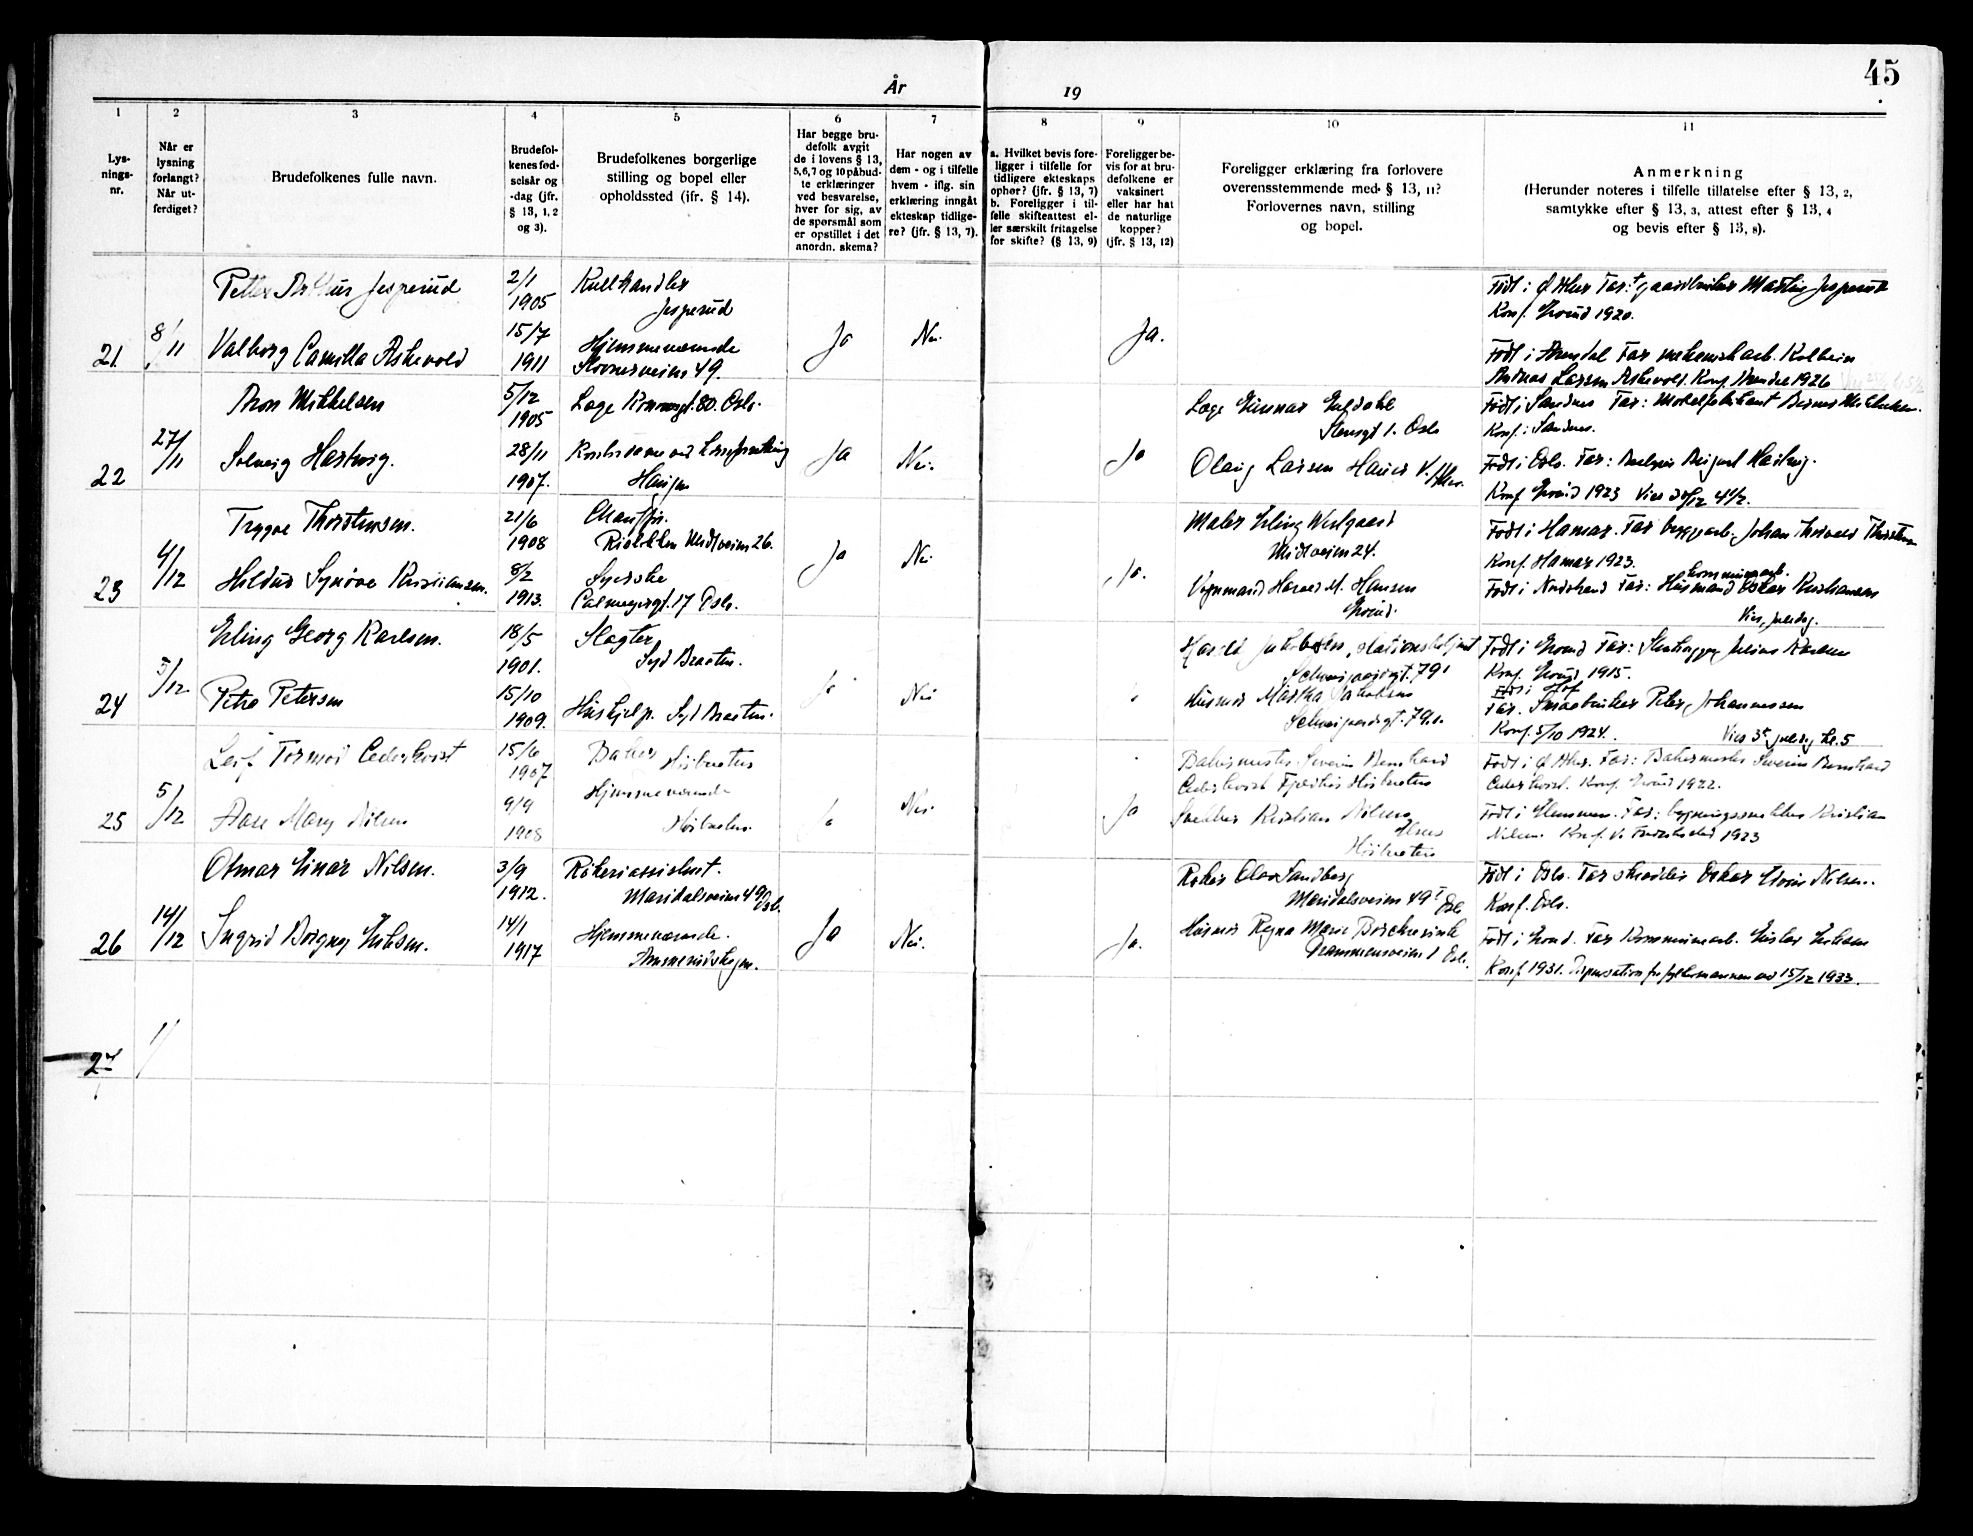 År
19
45
1
2
3
4
5
6
7
8
9
10
11
Lys-
nings-
nr.
Når er
lysning
forlangt?
Når ut-
ferdiget?
Brudefolkenes fulle navn.
Brudefol-
kenes fød-
selsår og
-dag (jfr.
§ 13, 1, 2
og 3).
Brudefolkenes borgerlige
stilling og bopel eller
opholdssted (jfr. § 14).
Har begge bru-
defolk avgit
de i lovens § 13,
5, 6, 7 og 10 påbud-
te erklæringer
ved besvarelse,
hver for sig, av
de spørsmål som
er opstillet i det
anordn. skema?
Har nogen av
dem - og i tilfelle
hvem - iflg. sin
erklæring inngått
ekteskap tidlige-
re? (jfr. § 13, 7).
a. Hvilket bevis fore-
ligger i tilfelle for
tidligere ekteskaps
ophør? (jfr. § 13, 7)
b. Foreligger i til-
felle skifteattest el-
ler særskilt fritagelse
for skifte? (§ 13, 9)
Foreligger be-
vis for at bru-
defolkene er
vaksinert
eller har hat
de naturlige
kopper?
(jfr. § 13, 12)
Foreligger erklæring fra forlovere
overensstemmende med § 13, 11?
Forlovernes navn, stilling
og bopel.
Anmerkning
(Herunder noteres i tilfelle tillatelse efter § 13, 2,
samtykke efter § 13, 3, attest efter § 13, 4
og bevis efter § 13, 8).
21
8/11
Petter Arthur Jesperud
2/1
1905
Kullhandler
Jesperud
Født i Ø. Aker Far: † gaardbruker Martin Jesperud
Konf. Grorud 1920.
Valborg Camilla Askevold
15/7
1911
Hjemmeværende
49.
Ja
Nei.
Ja.
Født i Arendal Far mekanisk arb. Kolbein
Andreas Larsen Askevold. Konf. Arendal 1926
22
27/11
Mikkelsen
5/12
1905
Læge 80. Oslo.
Læge Gunnar
Stensgt 1. Oslo
Født i Sandnes Far:
Konf. i Sandnes.
Solveig Hartvig.
28/11
1907.
Ja
Nei.
Ja
Olaug Larsen V. Aker.
Født i Oslo. Far: Hartvig.
Konf Grorud 1923 Vies 4 1/2.
23
4/12
Trygve Thorstensen.
21/6
1908
Chauffør.
Midtveien 26.
Maler Erling Westgaard
Midtveien 24.
Født i Hamar. Far byggearb. Johan Thorvald
Konf. Hamar 1923.
Hildur Synøve Kristiansen.
8/2
1913.
Syerske
17 Oslo.
Ja
Nei
Ja.
Vognmand Harald M. Hansen
Grorud.
kommunearb.
Født i Nordstrand Far: Husmand Oskar Kristiansen
Vies, juledag.
24
5/12
Erling Georg Karlsen.
18/5
1901.
Slagter
Syd Braaten.
Harald Jakobsen, stationsbetjent
Schweigaardsgt. 79 I
Født i Grorud Far: Stenhugger Julius Karlsen
Konf. Grorud 1915.
Petra Petersen
15/10
1909.
Hushjelp. Syd Braaten.
Ja
Nei
Husmor Martha Jakobsen
Schweigaardsgt. 79 I.
Født i Hof
Far. Smaabruker Peter Johannessen
Konf. 5/10 1924.
Vies 3die juledag kl. 5
25
5/12
Leif Tormod Cederkvist
15/6
1907
Baker
Høibraaten
Bakermester Severin Bernhard
Cederkvist Høibraaten
Født i Ø. Aker. Far: Bakermester Severin Bernhard
Cederkvist. Konf. Grorud 1922.
Aase Mary Nilsen
9/9
1908
Hjemmeværende
Høibraaten.
Ja
Nei.
Ja
Snekker Kristian Nilsen
Høibraaten
Født i Glemmen. Far: bygningssnekker Kristian
Nilsen. Konf. V. Fredrikstad 1923
26
14/12
Otmar Einar Nilsen.
3/9
1912.
Røkeriassistent.
Maridalsveien 49 Oslo.
Røker Olav Sandberg
Maridalsveien 49 I Oslo
Født i Oslo. Far skrædder Oskar Nilsen.
Konf. Oslo.
Ingrid Borgny Eriksen.
14/1
1917
Hjemmeværende.
Ammerudskogen.
Ja
Nei.
Ja.
Husmor Ragna Marie
Drammensveien 1 Oslo.
Født i Grorud. Far Kommunearb. Gustav Eriksen
Konf. 1931. Dispensation fra fylkesmannen av 15/12 1933.
27